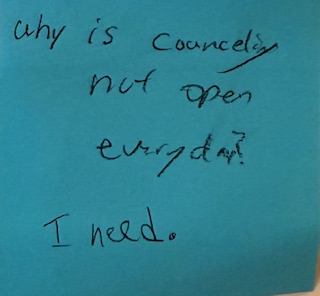 why is councelin
not open
everyday?
I need.